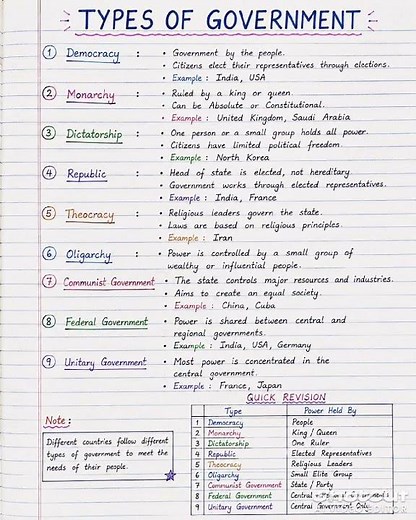 TYPES OF GOVERNMENT
1 Democracy : • Government by the people.
• Citizens elect their representatives through elections.
Example : India, USA
2 Monarchy : • Ruled by a king or queen.
• Can be Absolute or Constitutional.
• Example : United Kingdom, Saudi Arabia
3 Dictatorship : • One person or a small group holds all power.
• Citizens have limited political freedom.
• Example : North Korea
4 Republic : • Head of state is elected, not hereditary
• Government works through elected representatives.
• Example : India, France
5 Theocracy : • Religious leaders govern the state.
• Laws are based on religious principles.
• Example : Iran
6 Oligarchy : • Power is controlled by a small group of
wealthy or influential people.
7 Communist Government • The state controls major resources and industries.
• Aims to create an equal society.
• Example : China, Cuba
8 Federal Government • Power is shared between central and
regional governments.
• Example : India, USA, Germany
9 Unitary Government • Most power is concentrated in the
central government.
• Example : France, Japan
Note :
Different countries follow different
types of government to meet the
needs of their people.
QUICK REVISION
Type Power Held By
1 Democracy People
2 Monarchy King / Queen
3 Dictatorship One Ruler
4 Republic Elected Representatives
5 Theocracy Religious Leaders
6 Oligarchy Small Elite Group
7 Communist Government State / Party
8 Federal Government Central
9 Unitary Government Central Government Only